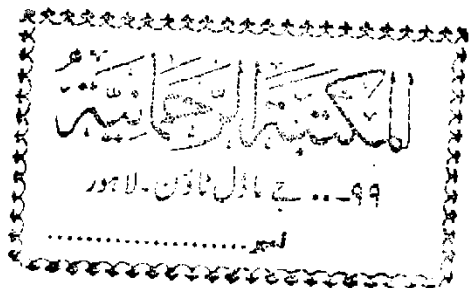 المکتبۃ الرحمانیۃ
۹۹... جے ماڈل ٹاؤن - لاہور
نمبر....................